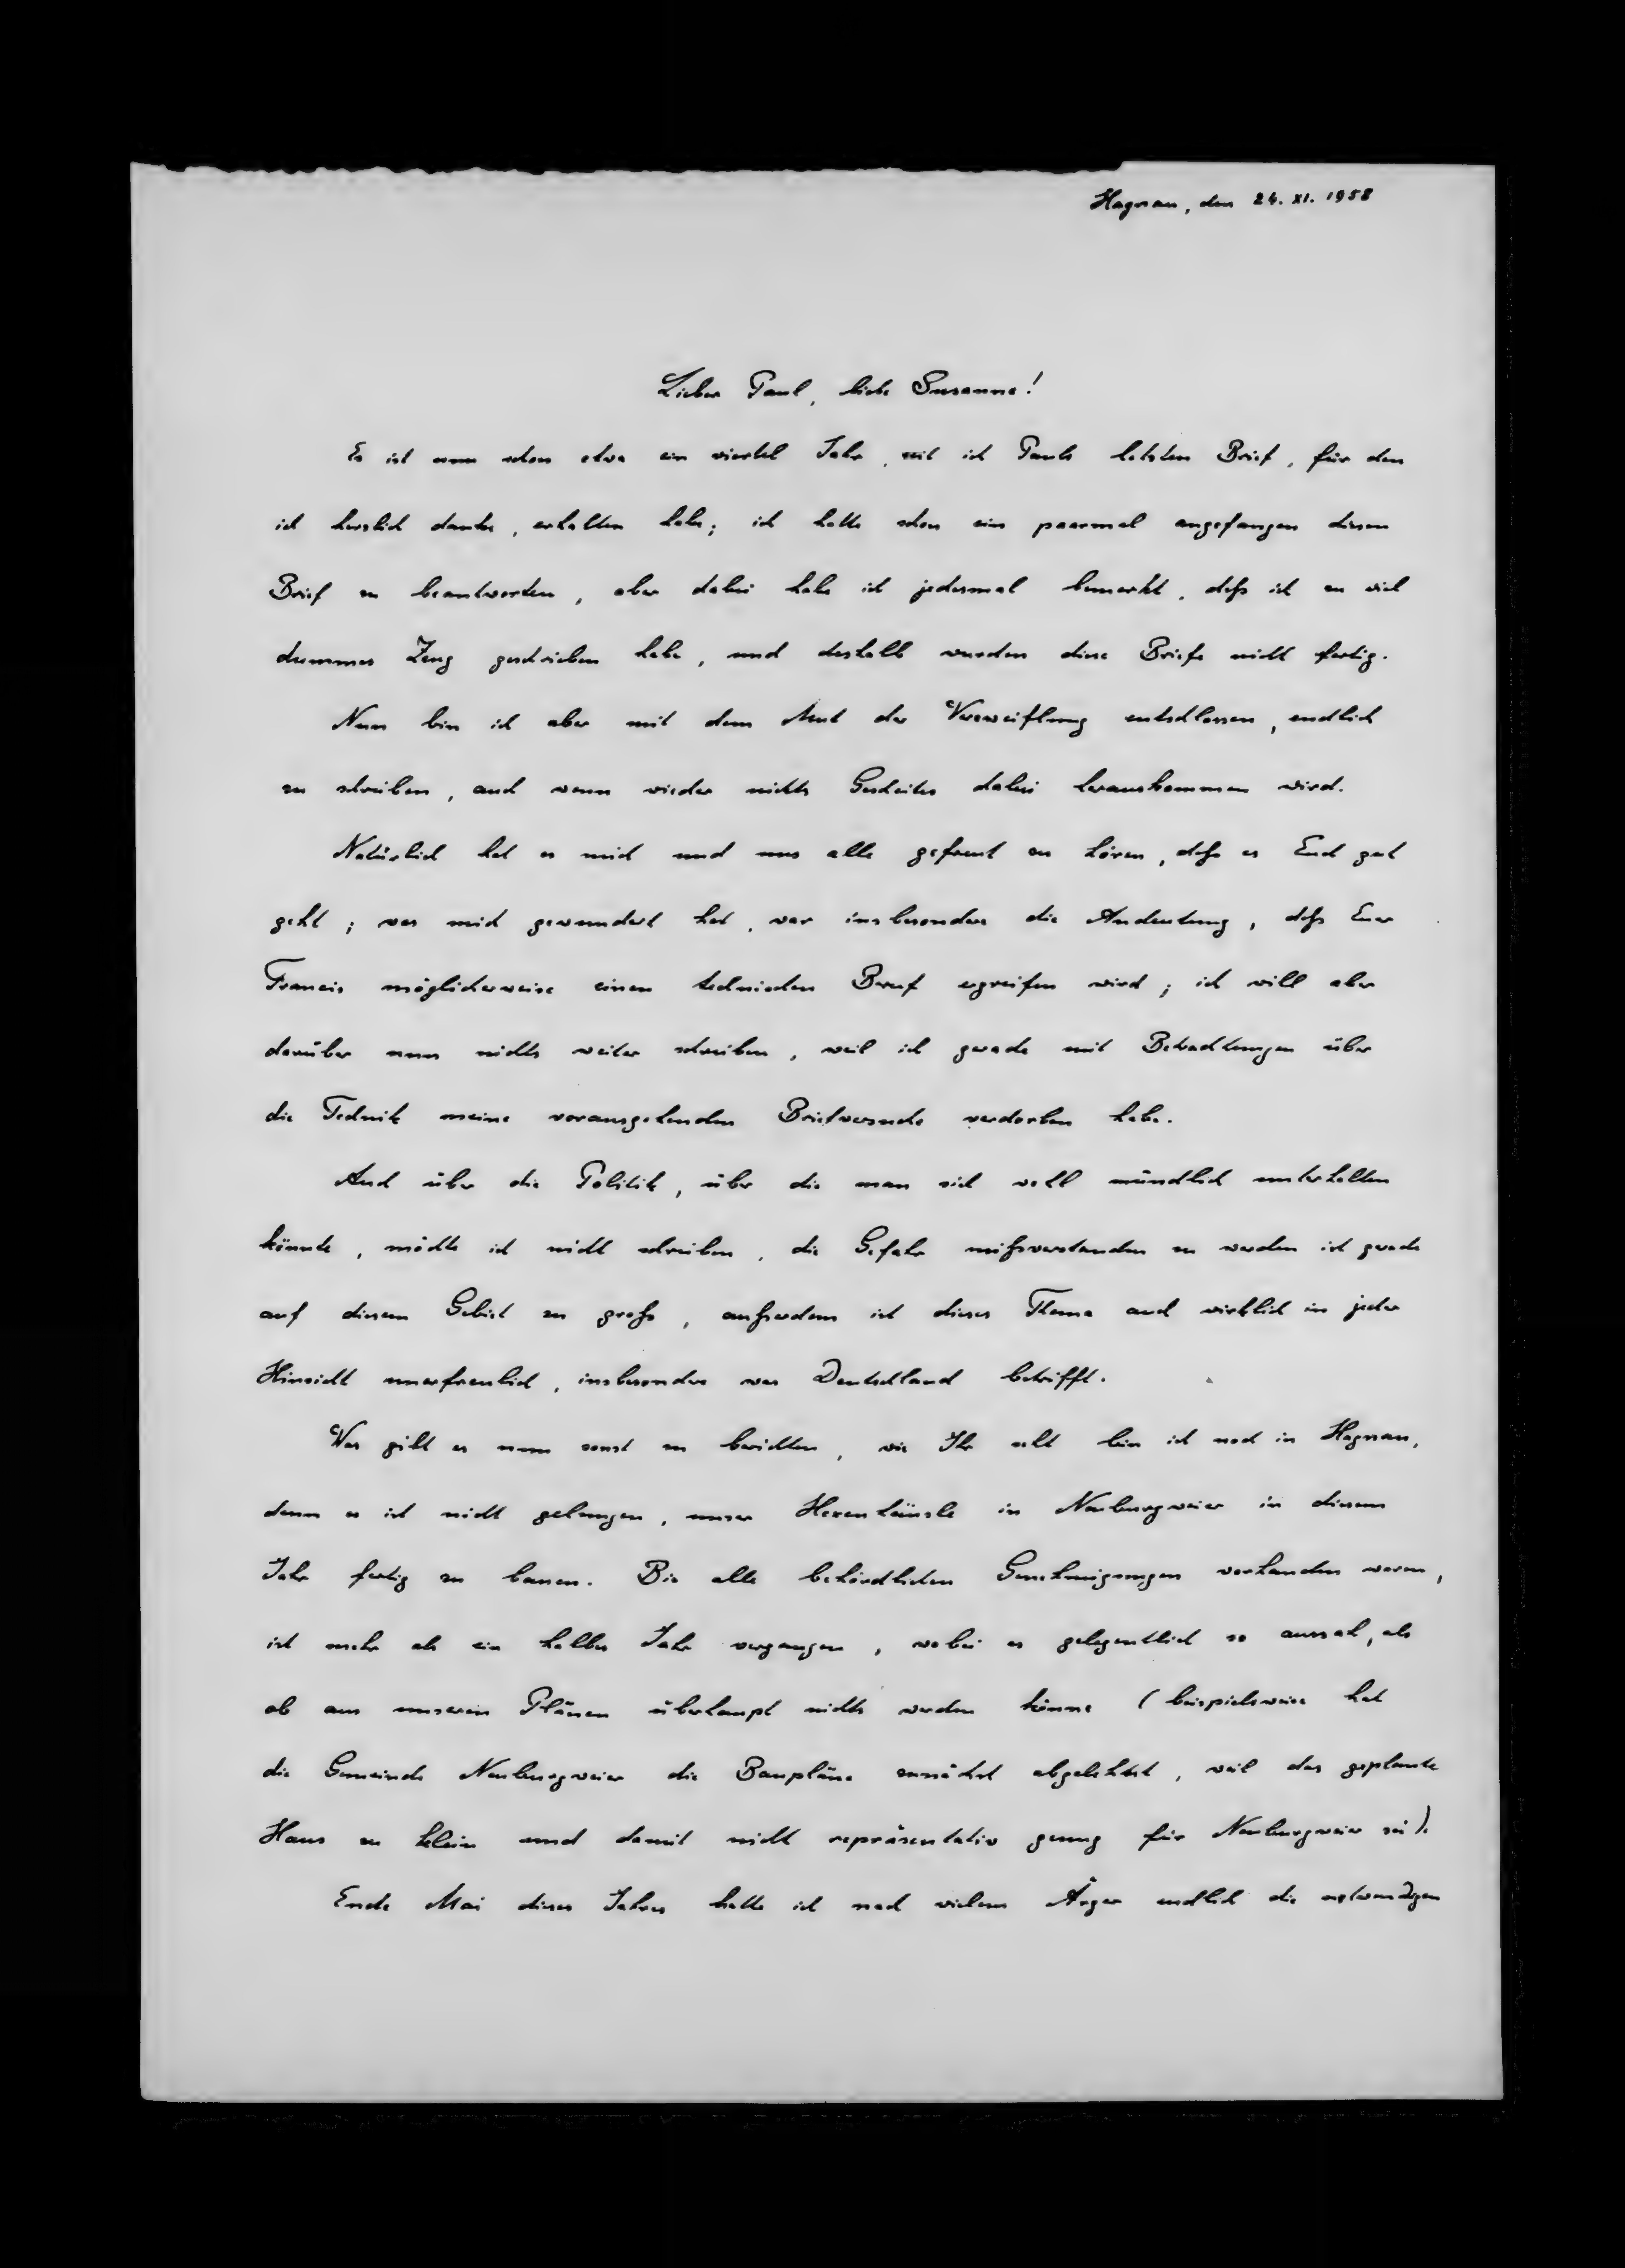 Hagnau, den 24. XI. 1958
Lieber Paul, liebe Susanne!
Es ist nun schon etwa ein viertel Jahr, seit ich Pauls letzten Brief, für den
ich herzlich danke, erhalten habe; ich hatte schon ein paarmal angefangen diesen
Brief zu beantworten, aber dabei habe ich jedesmal bemerkt, daß ich zu viel
dummes Zeug geschrieben habe, und deshalb wurden diese Briefe nicht fertig.
Nun bin ich aber mit dem Mut der Verzweiflung entschlossen, endlich
zu schreiben, auch wenn wieder nichts Gescheites dabei herauskommen wird.
Natürlich hat es mich und uns alle gefreut zu hören, daß es Euch gut
geht; was mich gewundert hat, war insbesondere die Andeutung, daß Euer
Francis möglicherweise einen technischen Beruf ergreifen wird; ich will aber
darüber nun nichts weiter schreiben, weil ich gerade mit Betrachtungen über
die Technik meine vorausgehenden Briefversuche verdorben habe.
Auch über die Politik, über die man sich wohl mündlich unterhalten
könnte, möchte ich nicht schreiben, die Gefahr mißverstanden zu werden ist gerade
auf diesem Gebiet zu groß, außerdem ist dieses Thema auch wirklich in jeder
Hinsicht unerfreulich, insbesondere was Deutschland betrifft.
Was gibt es nun sonst zu berichten, wie Ihr seht bin ich noch in Hagnau,
denn es ist nicht gelungen, unser Hexenhäusle in Neuburgweier in diesem
Jahr fertig zu bauen. Bis alle behördlichen Genehmigungen vorhanden waren,
ist mehr als ein halbes Jahr vergangen, wobei es gelegentlich so aussah, als
ob aus unseren Plänen überhaupt nichts werden könne (beispielsweise hat
die Gemeinde Neuburgweier die Baupläne zunächst abgelehnt, weil das geplante
Haus zu klein und damit nicht repräsentativ genug für Neuburgweier sei).
Ende Mai dieses Jahres hatte ich nach vielem Ärger endlich die notwendigen